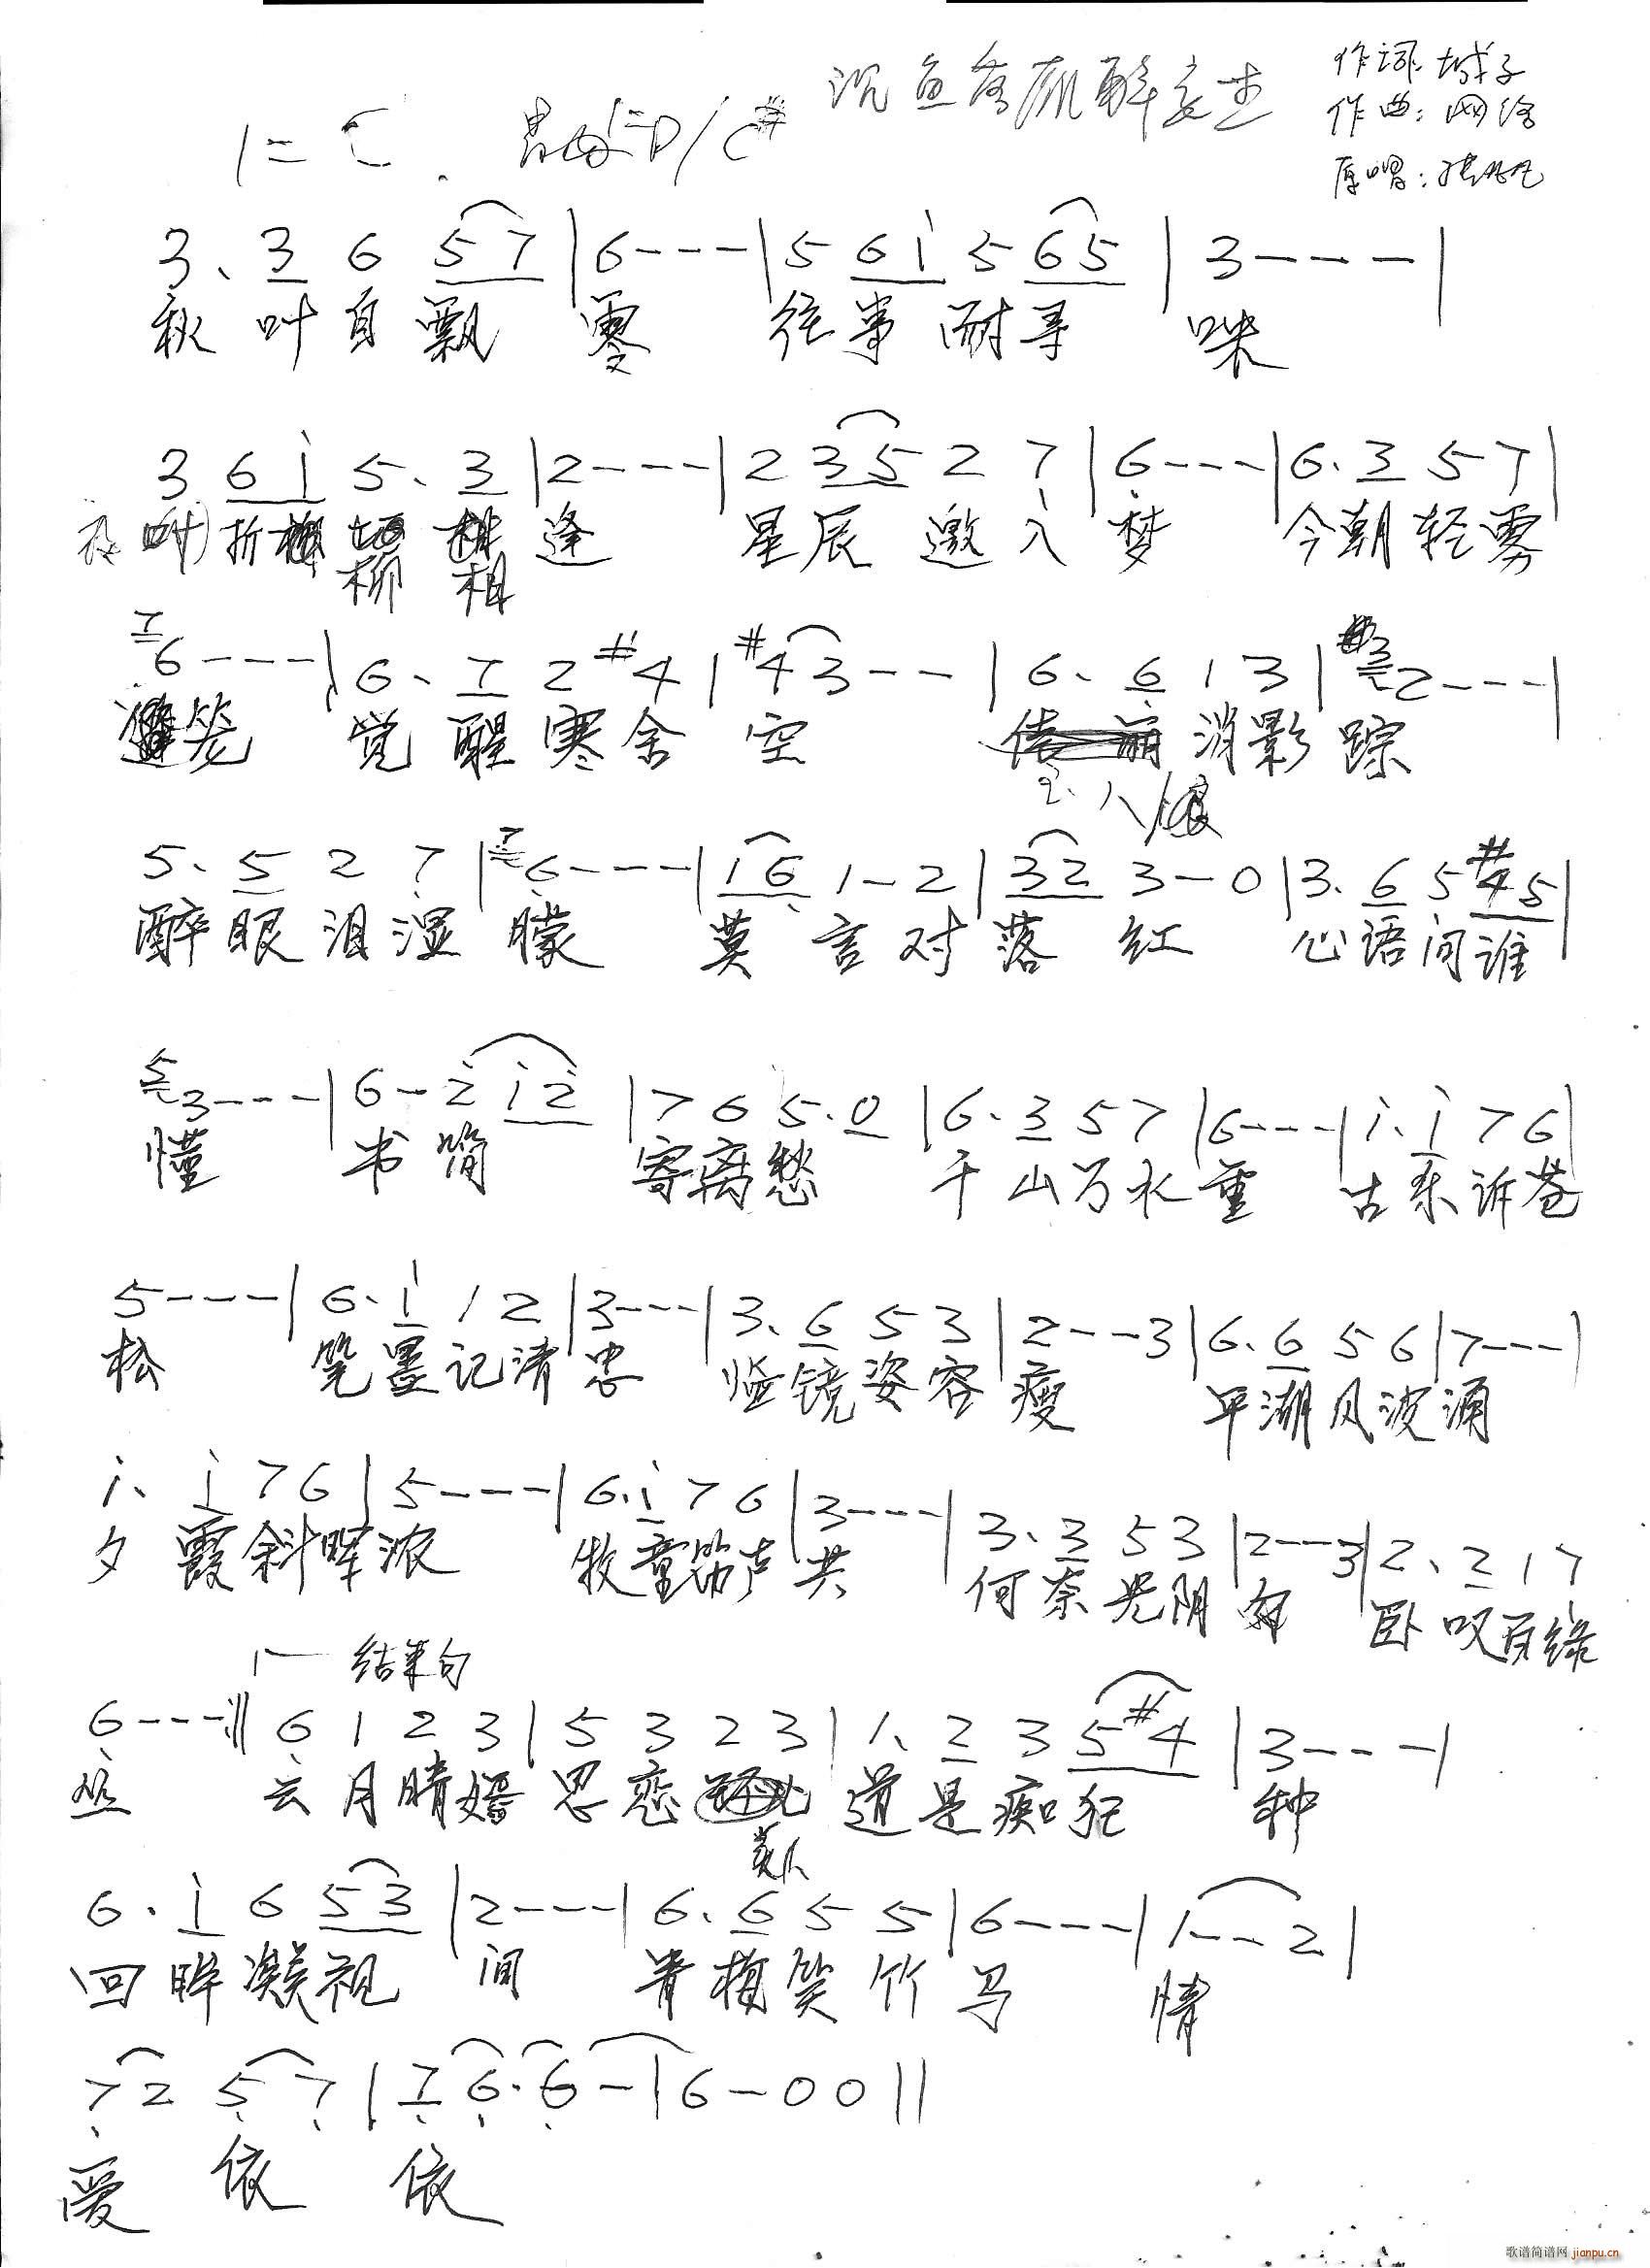 沉鱼落雁醉
作词: 城子
作曲: 网络
原唱:
1=C
3、 3 6 5 7 | 6---- | 5 6 i 5 6 5 | 3---- |
秋 叶 自 飘 零 往 事 耐 寻 味
3 6 i 5、 3 | 2---- | 2 3 5 2 7 | 6---- | 6. 3 5 7 |
折 柳 相 逢 星 辰 邀 入 梦 今 朝 轻 雾
6---- | 6、 7 2 #4 | #4 3-- | 6、 6 1 3 | 2---- |
笼 觉 醒 寒 余 空 消 影 踪
5、 5 2 7 | 6---- | 1 6 1-2 | 3 2 3-0 | 3. 6 5 #4 5 |
醉 眼 泪 湿 朦 莫 言 对 落 红 心 语 问 谁
3---- | 6-2 i 2 | 7 6 5.0 | 6. 3 5 7 | 6---- | i、 i 7 6 |
懂 书 简 寄 离 愁 千 山 万 水 重 古 乐 诉 苍
5---- | 6、 i 1 2 | 3---- | 3、 6 5 3 | 2---3 | 6. 6 5 6 | 7---- |
松 笔 墨 记 清 忠 临 镜 姿 容 瘦 平 湖 风 波 涌
i、 i 7 6 | 5---- | 6. i 7 6 | 3---- | 3、 3 5 3 | 2---3 | 2、 2 1 7
夕 霞 斜 晖 浓 牧 童 笛 声 共 何 奈 光 阴 匆 卧 叹 百 缘
结束句
6---- || 6 1 2 3 | 5 3 2 3 | 1、 2 3 5 #4 | 3---- |
丝 云 月 晴 嫣 思 恋 道 是 痴 狂 种
美人
6. i 6 5 3 | 2---- | 6、 6 5 5 | 6---- | 1---2 |
回 眸 凝 视 间 青 梅 笑 竹 马 情
7 2 5 7 | 7 6. 6- | 6-0 0 ||
爱 依 依
歌谱简谱网 jianpu.cn